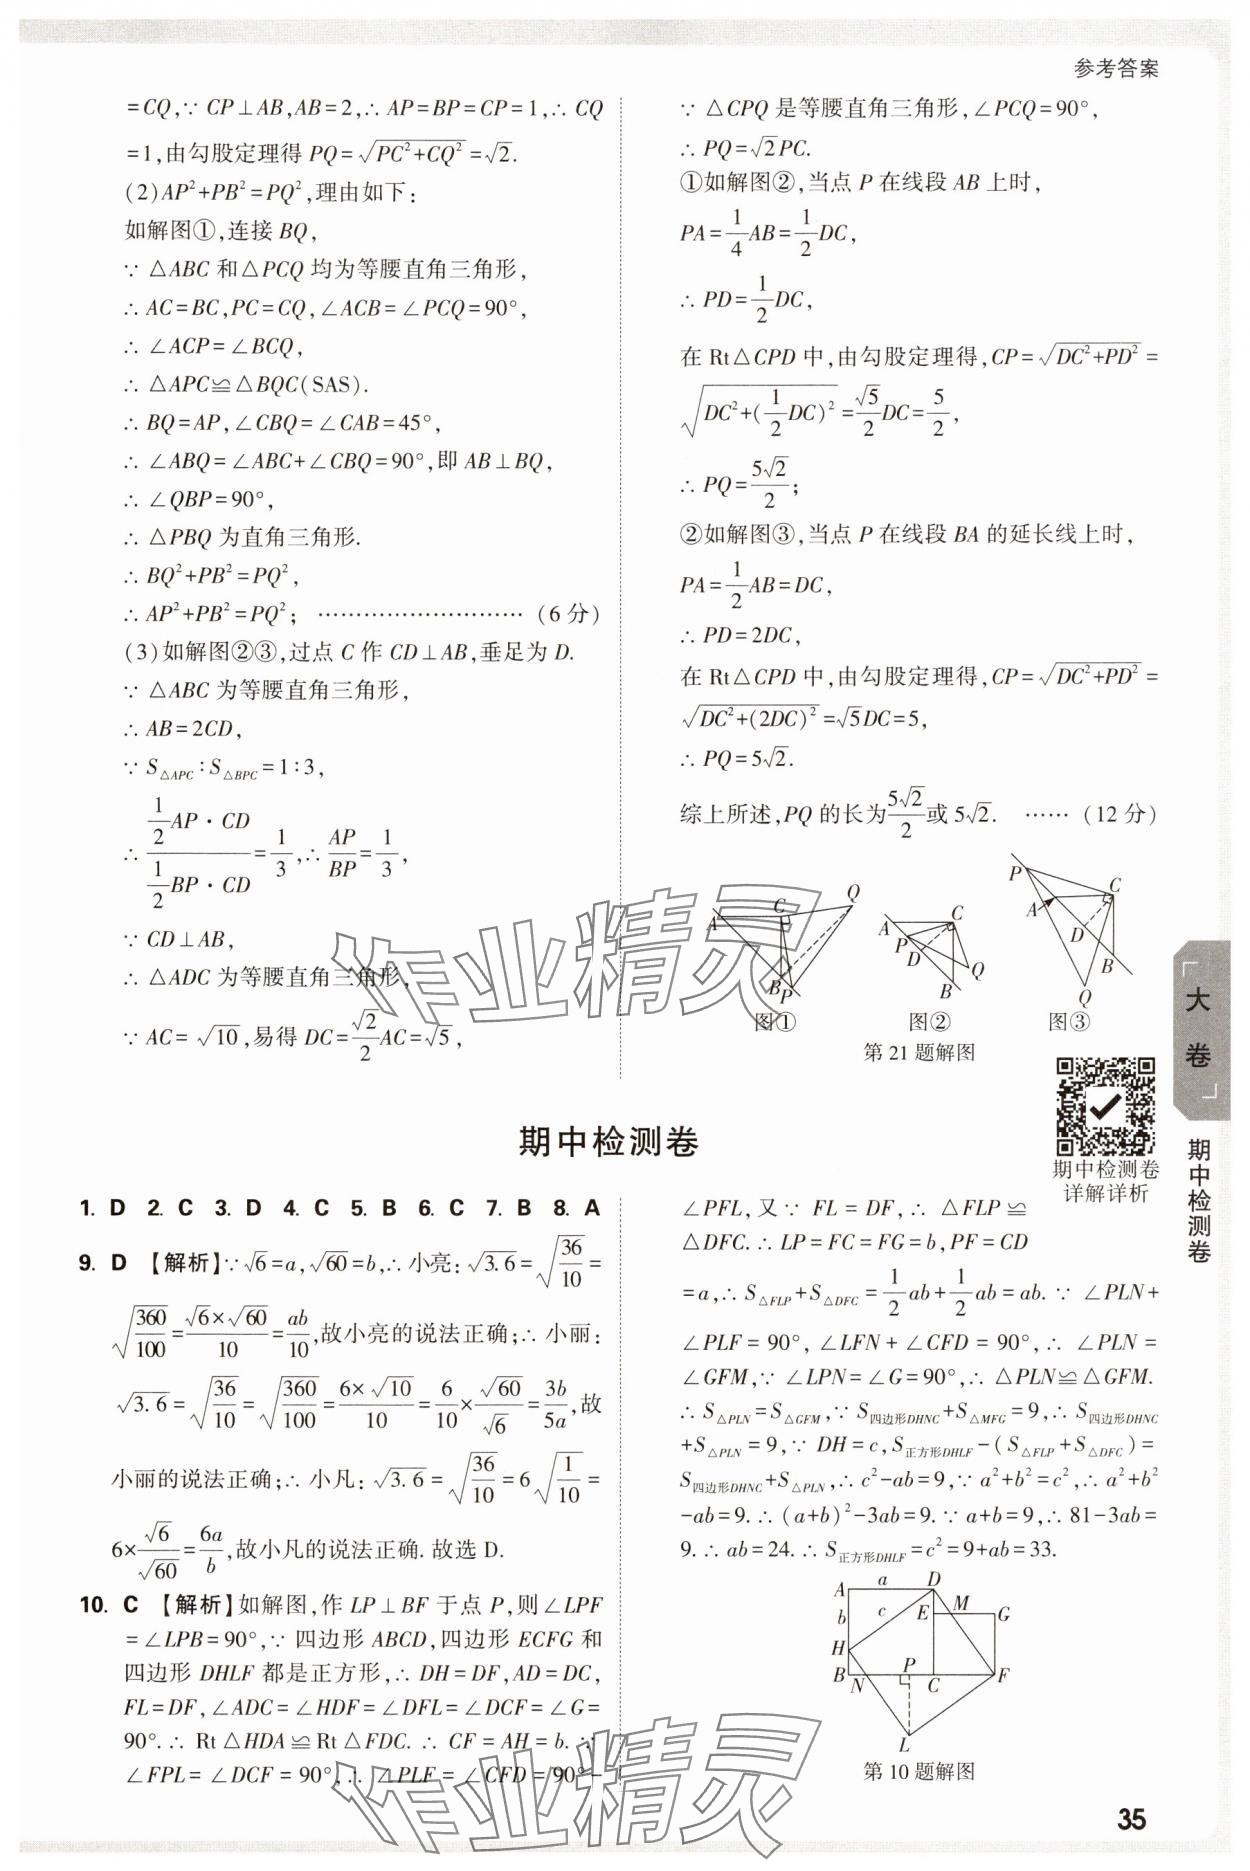 参考答案
=CQ,∵ CP⊥AB,AB=2,∴ AP=BP=CP=1,∴ CQ
=1,由勾股定理得 PQ=√(PC²+CQ²)=√2.
(2)AP²+PB²=PQ²,理由如下:
如解图①,连接 BQ,
∵ △ABC 和△PCQ 均为等腰直角三角形,
∴ AC=BC,PC=CQ,∠ACB=∠PCQ=90°,
∴ ∠ACP=∠BCQ,
∴ △APC≌△BQC(SAS).
∴ BQ=AP,∠CBQ=∠CAB=45°,
∴ ∠ABQ=∠ABC+∠CBQ=90°,即 AB⊥BQ,
∴ ∠QBP=90°,
∴ △PBQ 为直角三角形.
∴ BQ²+PB²=PQ²,
∴ AP²+PB²=PQ²; ………………………(6 分)
(3)如解图②③,过点 C 作 CD⊥AB,垂足为 D.
∵ △ABC 为等腰直角三角形,
∴ AB=2CD,
∵ S△APC∶S△BPC=1∶3,
∴ (1/2 AP·CD)/(1/2 BP·CD)=1/3,∴ AP/BP=1/3,
∵ CD⊥AB,
∴ △ADC 为等腰直角三角形,
∵ AC=√10,易得 DC=√2/2 AC=√5,
∵ △CPQ 是等腰直角三角形,∠PCQ=90°,
∴ PQ=√2PC.
①如解图②,当点 P 在线段 AB 上时,
PA=1/4 AB=1/2 DC,
∴ PD=1/2 DC,
在 Rt△CPD 中,由勾股定理得,CP=√(DC²+PD²)=
√(DC²+(1/2 DC)²)=√5/2 DC=5/2,
∴ PQ=5√2/2;
②如解图③,当点 P 在线段 BA 的延长线上时,
PA=1/2 AB=DC,
∴ PD=2DC,
在 Rt△CPD 中,由勾股定理得,CP=√(DC²+PD²)=
√(DC²+(2DC)²)=√5DC=5,
∴ PQ=5√2.
综上所述,PQ 的长为5√2/2或 5√2. ……(12 分)
A C Q B P
图①
A C P D Q B
图②
P A C D B Q
图③
第 21 题解图
大卷
期中检测卷
期中检测卷
详解详析
期中检测卷
1. D 2. C 3. D 4. C 5. B 6. C 7. B 8. A
9. D 【解析】∵√6=a,√60=b,∴小亮:√3.6=√(36/10)=
√(360/100)=(√6×√60)/10=ab/10,故小亮的说法正确;∴小丽:
√3.6=√(36/10)=√(360/100)=(6×√10)/10=6/10×√60/√6=3b/5a,故
小丽的说法正确;∴小凡:√3.6=√(36/10)=6√(1/10)=
6×√6/√60=6a/b,故小凡的说法正确.故选 D.
10. C 【解析】如解图,作 LP⊥BF 于点 P,则∠LPF
=∠LPB=90°,∵ 四边形 ABCD,四边形 ECFG 和
四边形 DHLF 都是正方形,∴ DH=DF,AD=DC,
FL=DF,∠ADC=∠HDF=∠DFL=∠DCF=∠G=
90°.∴ Rt△HDA≌Rt△FDC.∴ CF=AH=b.∵
∠FPL=∠DCF=90°,∴ ∠PLF=∠CFD=90°-
∠PFL,又∵ FL=DF,∴ △FLP≌
△DFC.∴ LP=FC=FG=b,PF=CD
=a,∴ S△FLP+S△DFC=1/2 ab+1/2 ab=ab.∵ ∠PLN+
∠PLF=90°,∠LFN+∠CFD=90°,∴ ∠PLN=
∠GFM,∵ ∠LPN=∠G=90°,∴ △PLN≌△GFM.
∴ S△PLN=S△GFM,∵ S四边形DHNC+S△MFG=9,∴ S四边形DHNC
+S△PLN=9,∵ DH=c,S正方形DHLF-(S△FLP+S△DFC)=
S四边形DHNC+S△PLN,∴ c²-ab=9,∵ a²+b²=c²,∴ a²+b²
-ab=9.∴ (a+b)²-3ab=9.∵ a+b=9,∴ 81-3ab=
9.∴ ab=24.∴ S正方形DHLF=c²=9+ab=33.
A a D
b c E M G
H
B N P C F
L
第 10 题解图
35
作业精灵
作业精灵